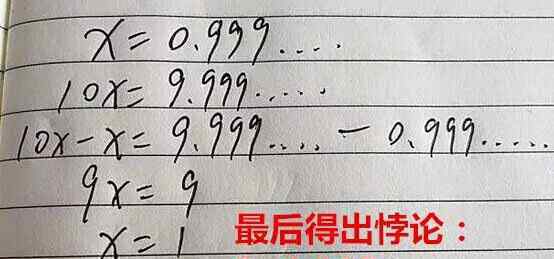 x = 0.999....
10x = 9.999.....
10x - x = 9.999.... - 0.999.....
9x = 9
x = 1
最后得出悖论：